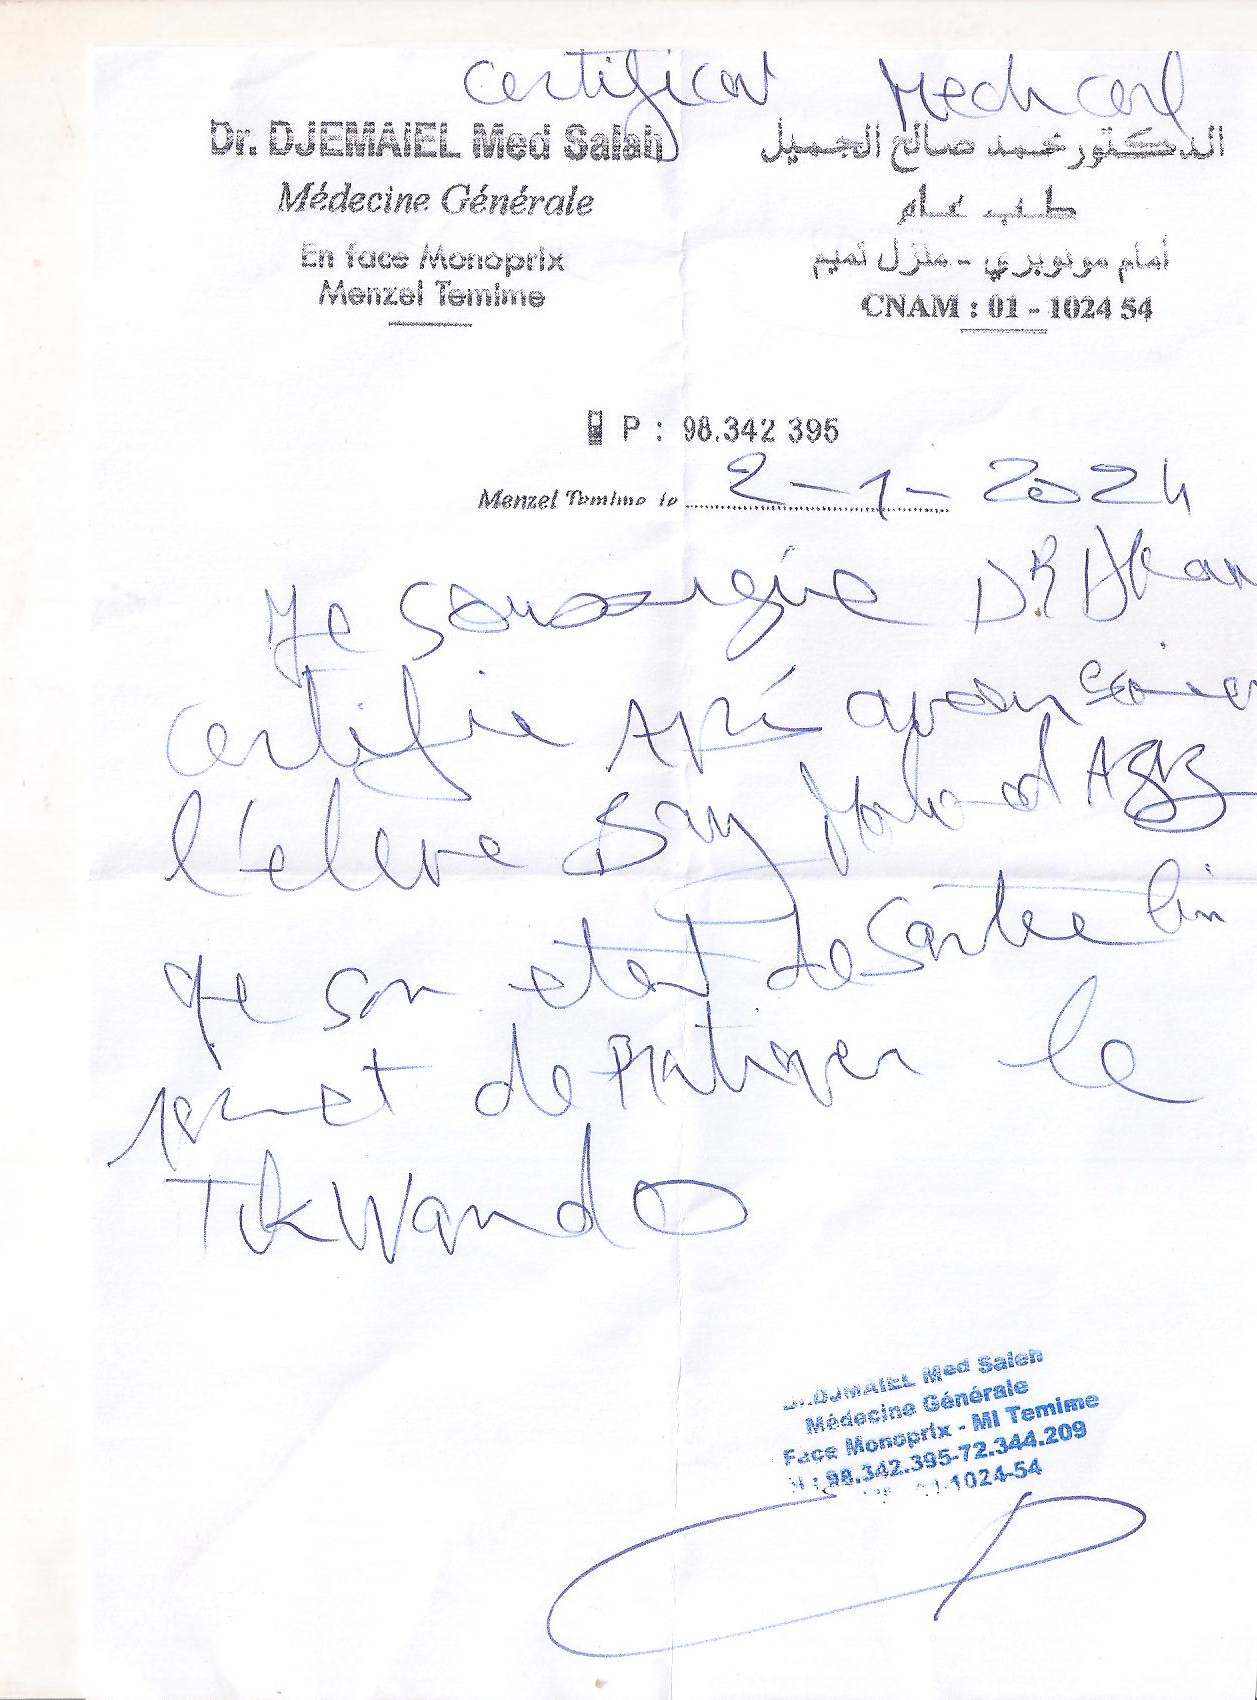 Certificat Medical
Dr. DJEMAIEL Med Salah
Médecine Générale
En face Monoprix
Menzel Temime
الدكتور محمد صالح الجميل
طب عام
أمام مونوبري - منزل تميم
CNAM : 01 - 1024 54
P : 98.342 395
Menzel Temime le 2-1-2024
Je soussigné DR
certifie Après avoir
l'eleve Bay Mohamed Aziz
que son etat de Santee lui
permet de Pratiquer le
TikWando
Dr.DJMAIEL Med Saleh
Médecine Générale
Face Monoprix - Ml Temime
98.342.395-72.344.209
1024-54